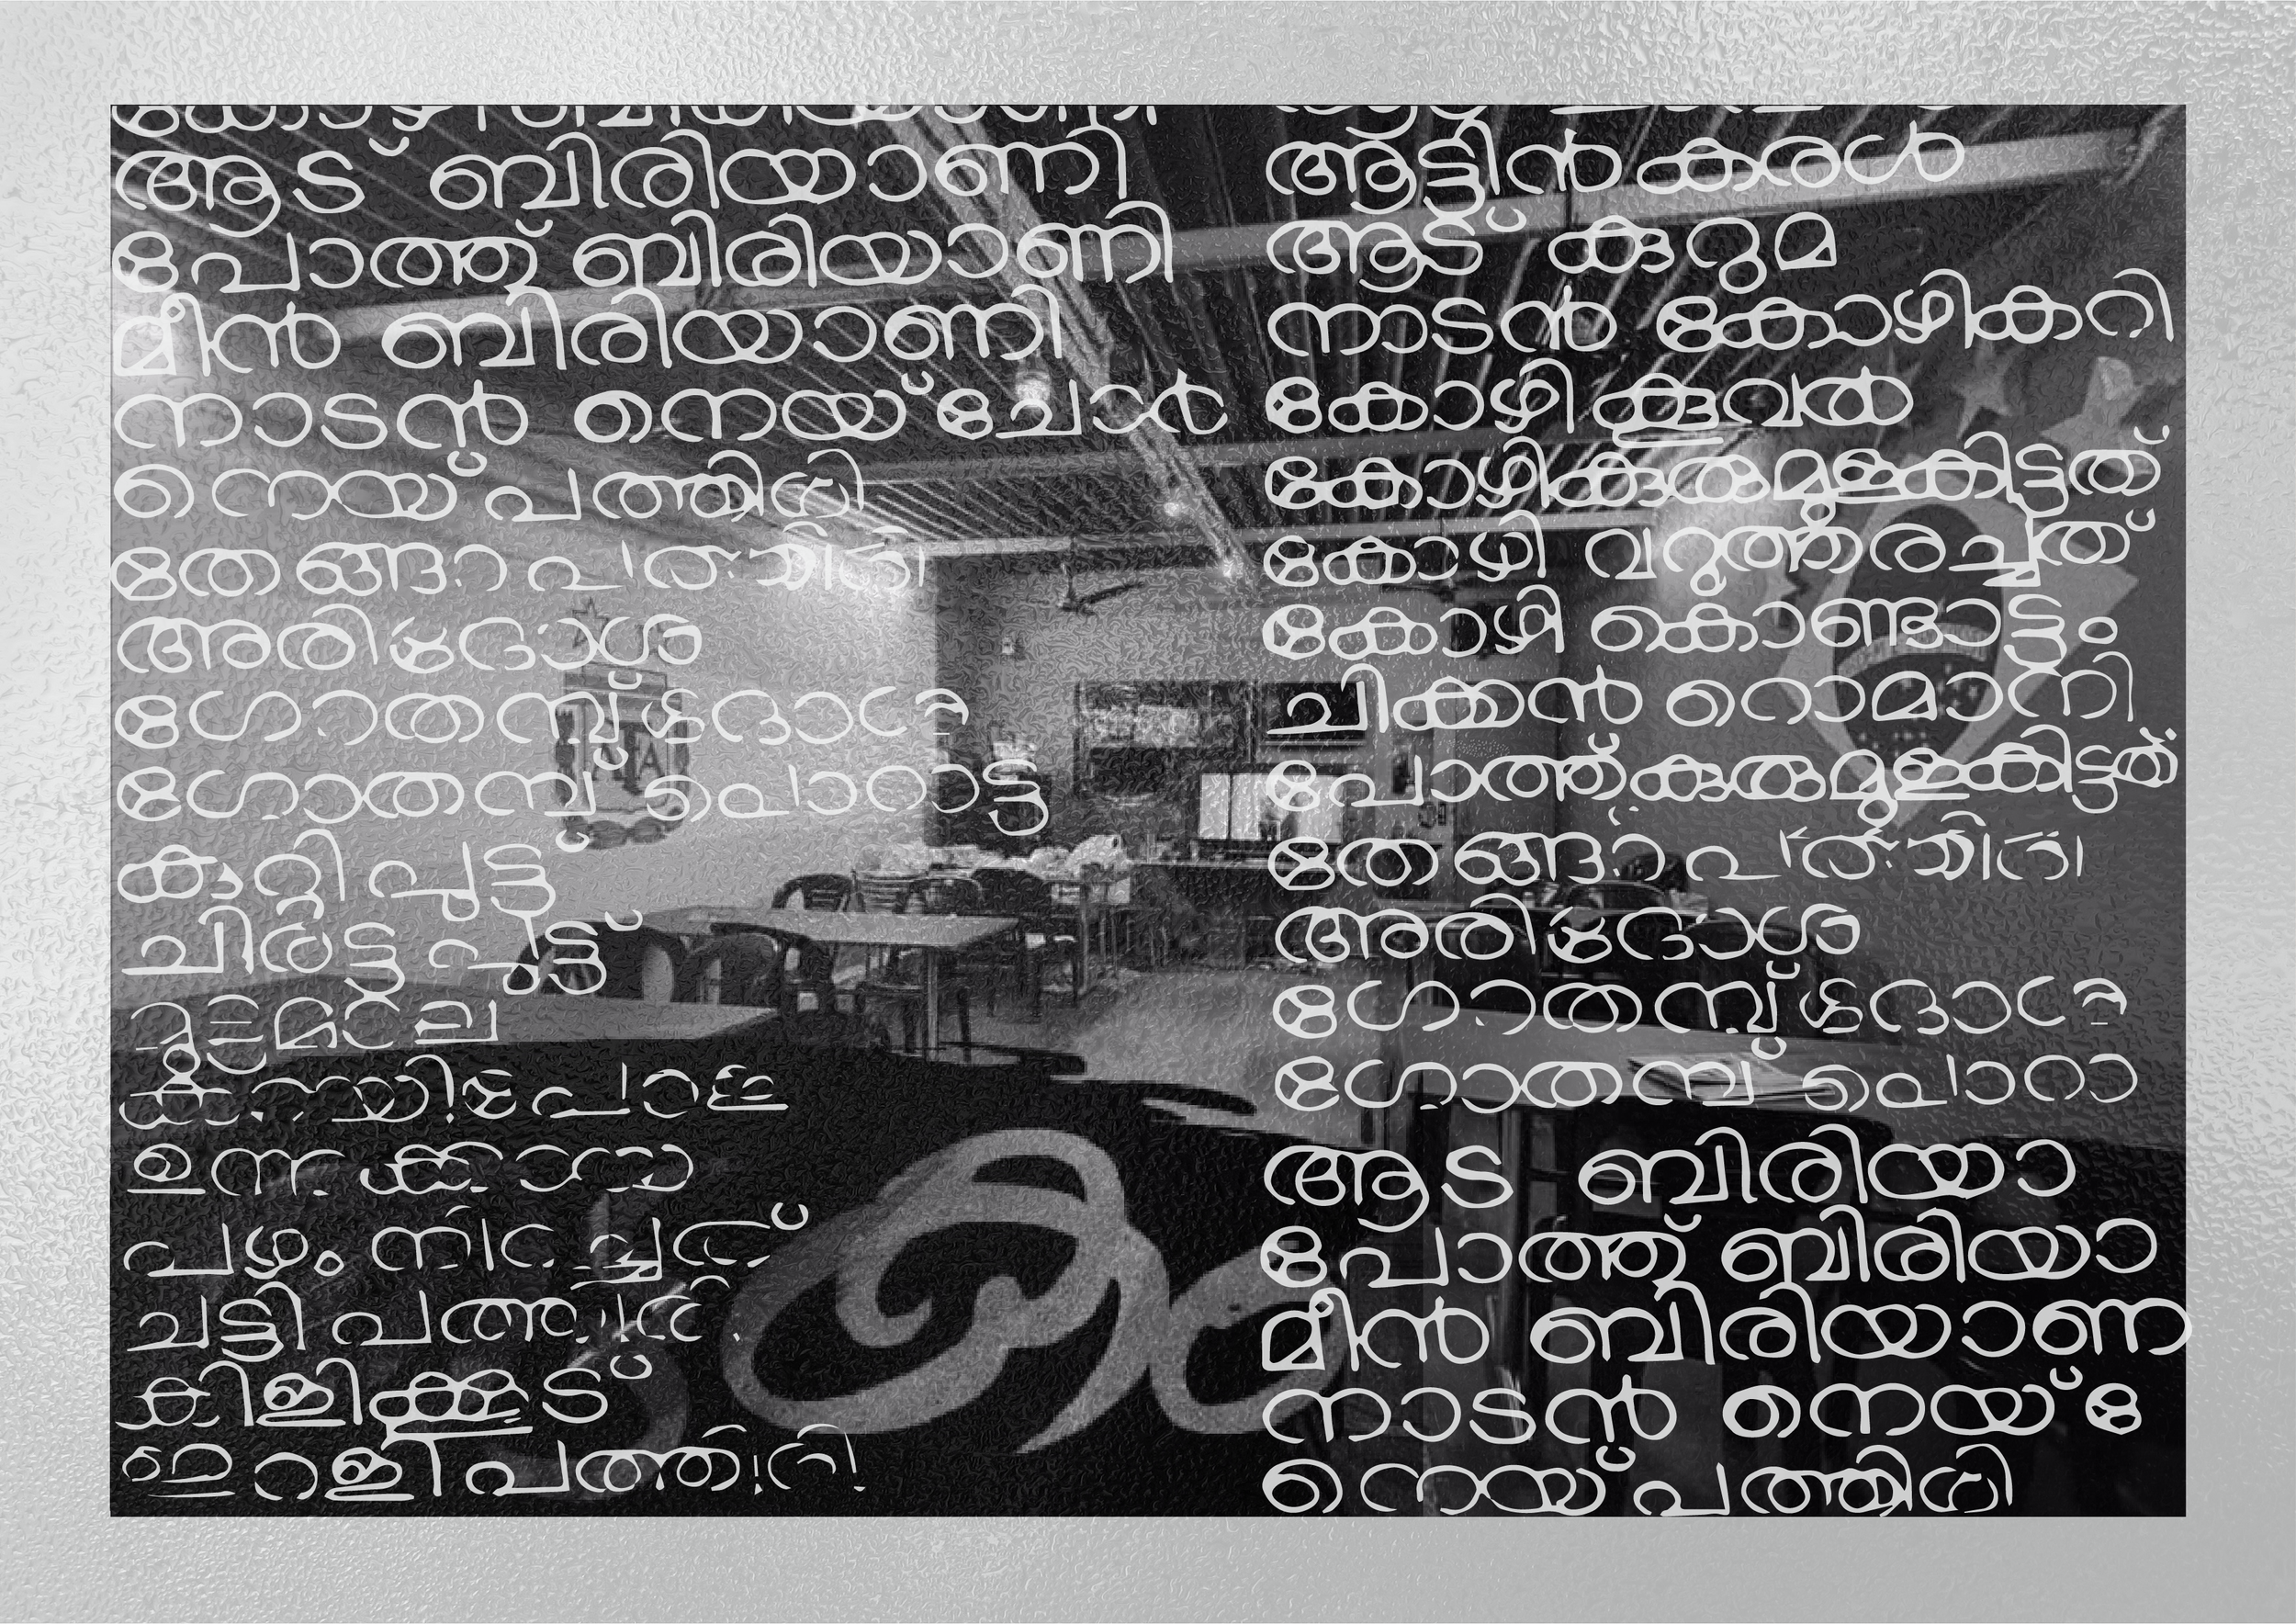 കോഴി ബിരിയാണി
ആട് ബിരിയാണി
പോത്ത് ബിരിയാണി
മീൻ ബിരിയാണി
നാടൻ നെയ്ചോർ
നെയ്പത്തിരി
തേങ്ങാപത്തിരി
അരിദോശ
ഗോതമ്പ്ദോശ
ഗോതമ്പ് പൊറാട്ട
കുറ്റിപുട്ട്
ചിരട്ടപുട്ട്
മുട്ടമാല
കായിപോള
ഉന്നക്കായ
പഴം നിറച്ചത്
ചട്ടിപത്തിരി
കിളിക്കൂട്
ഇറളിപത്തിരി
ആട്ടിൻകരൾ
ആട് കുറുമ
നാടൻ കോഴികറി
കോഴികൂവൽ
കോഴികുരുമുളകിട്ടത്
കോഴി വറുത്തരച്ചത്
കോഴി കൊണ്ടാട്ടം
ചിക്കൻ റൊമാനി
പോത്ത്കുരുമുളകിട്ടത്
തേങ്ങാപത്തിരി
അരിദോശ
ഗോതമ്പ്ദോശ
ഗോതമ്പ് പൊറാ
ആട ബിരിയാ
പോത്ത് ബിരിയാ
മീൻ ബിരിയാണ
നാടൻ നെയ്േ
നെയ്പത്തിരി